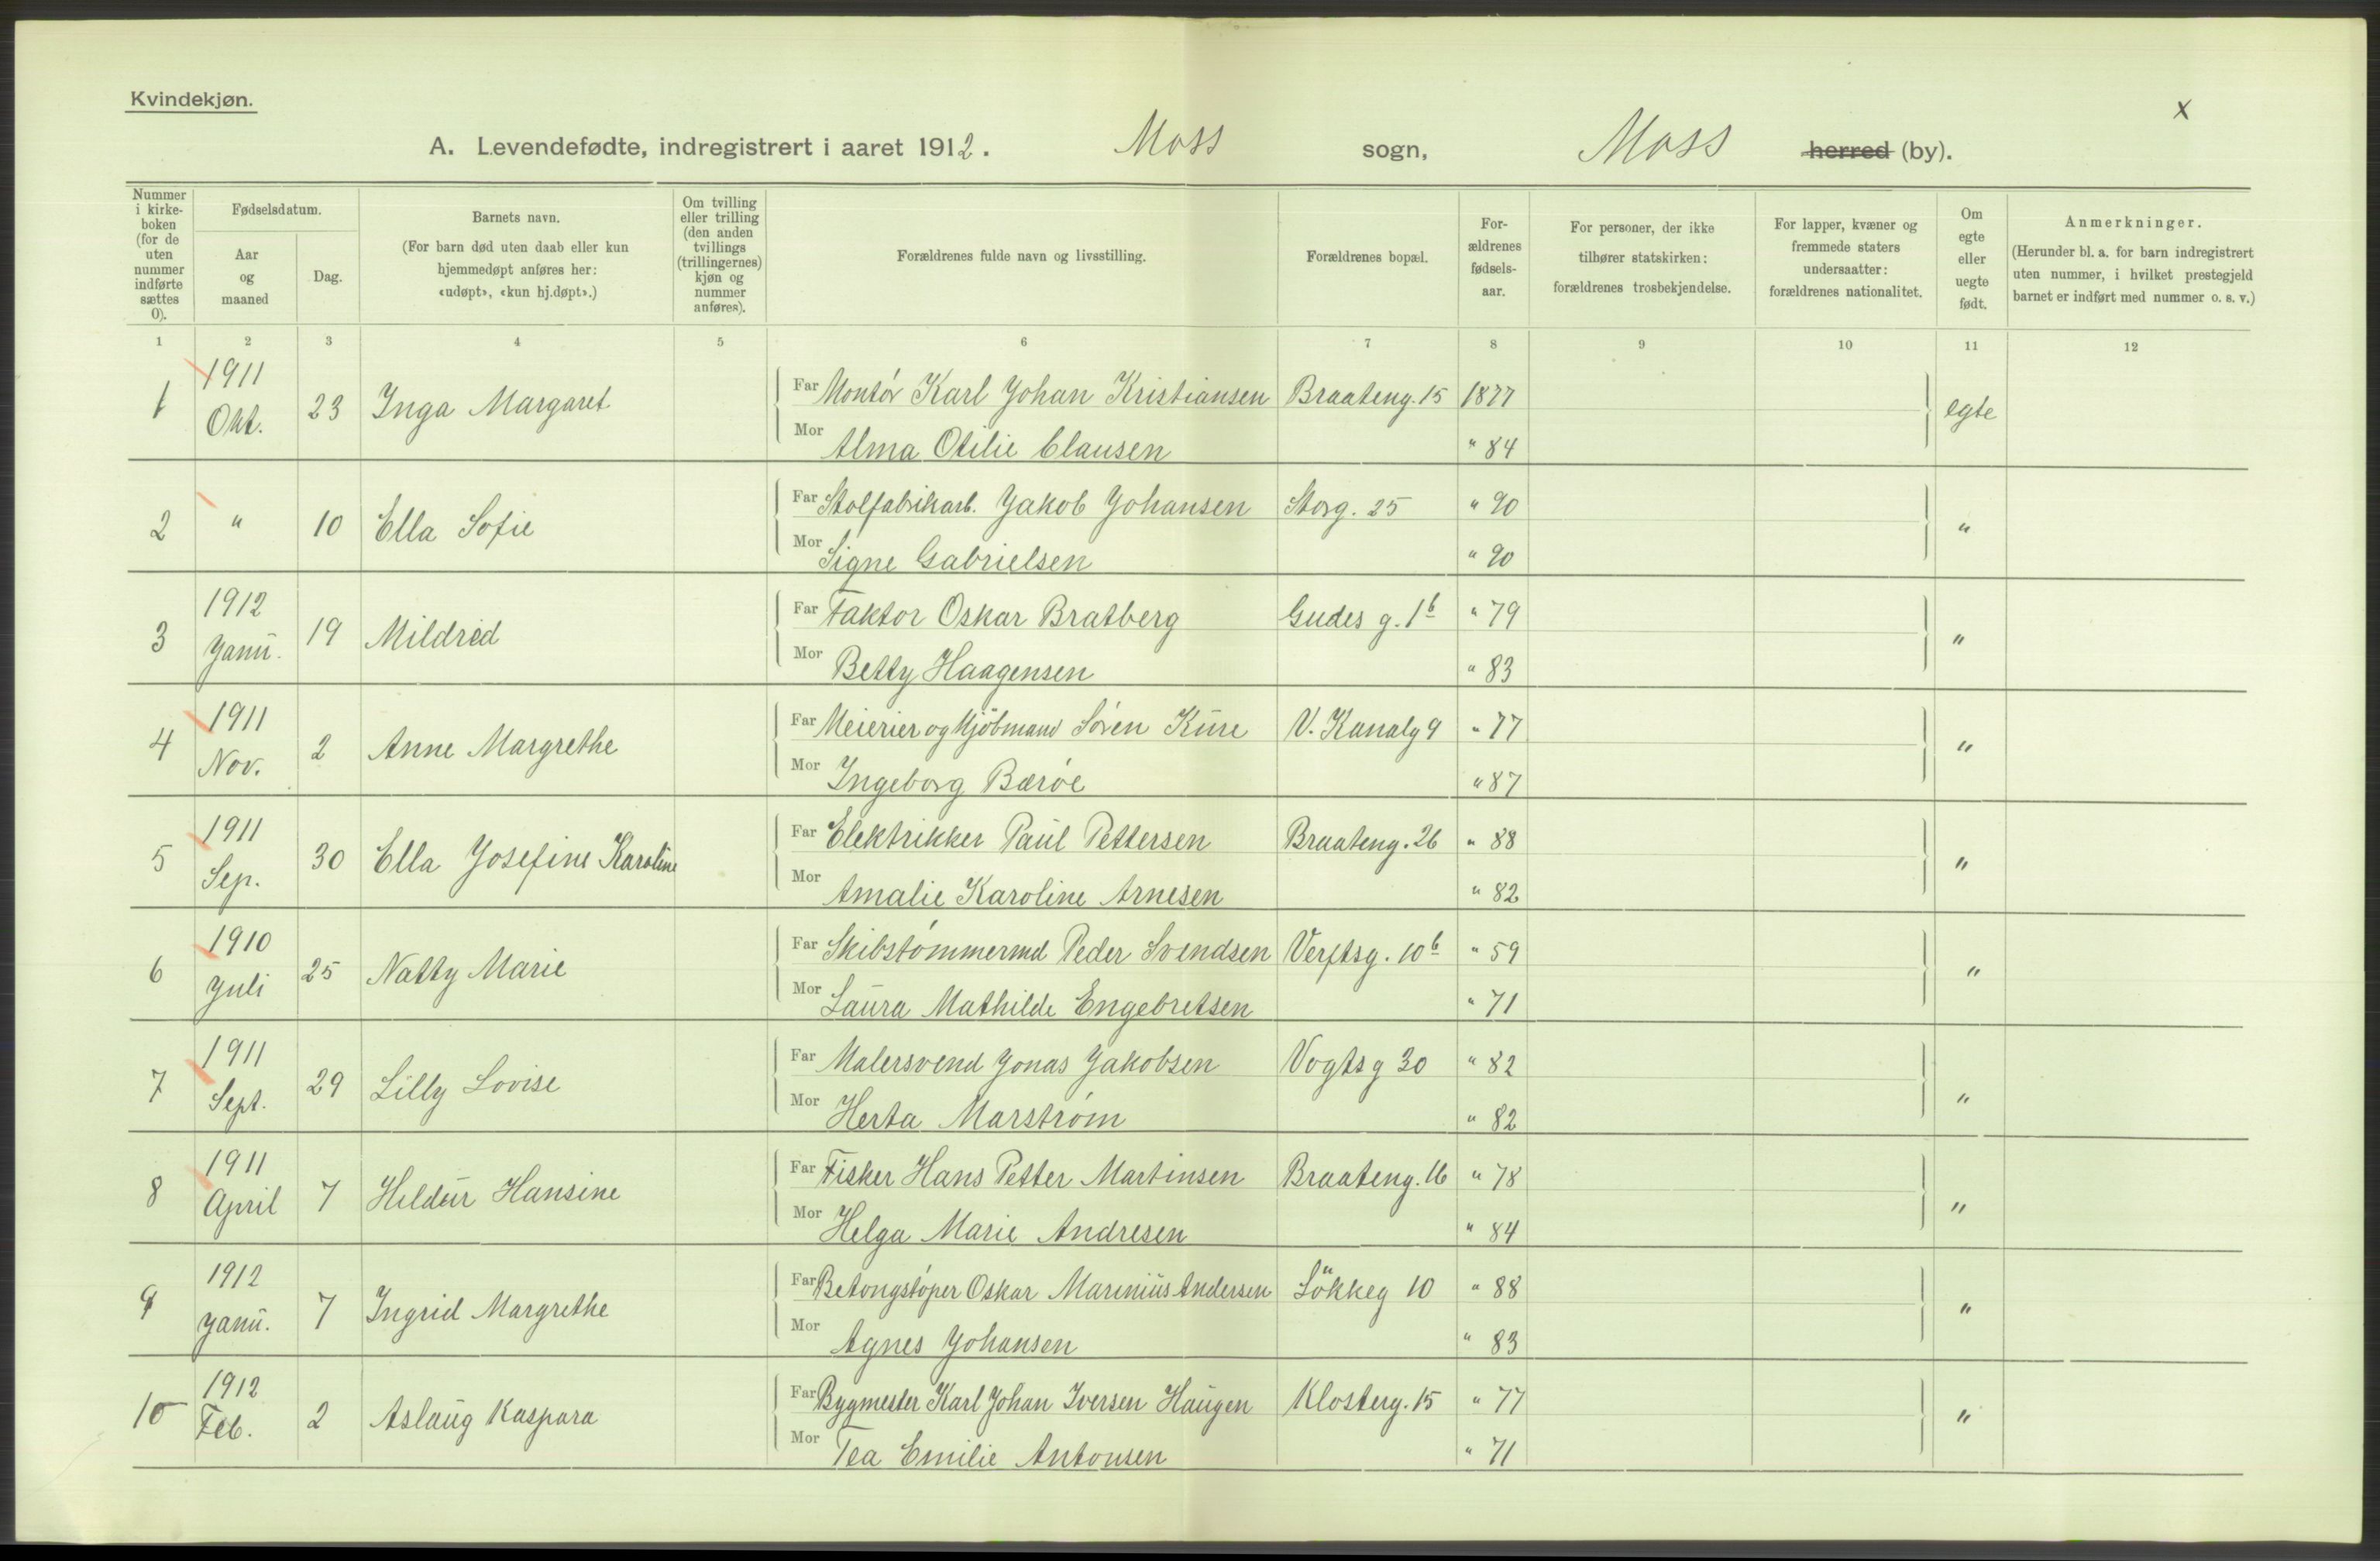 Kvindekjøn.
x
A. Levendefødte, indregistrert i aaret 1912. Moss sogn, Moss herred (by).
Nummer i kirke-boken (for de uten nummer indførte sættes 0).
Fødselsdatum.
Aar og maaned
Dag.
Barnets navn.
(For barn død uten daab eller kun hjemmedøpt anføres her: «udøpt», «kun hj.døpt».)
Om tvilling eller trilling (den anden tvillings (trillingernes) kjøn og nummer anføres).
Forældrenes fulde navn og livsstilling.
Forældrenes bopæl.
For-ældrenes fødsels-aar.
For personer, der ikke tilhører statskirken: forældrenes trosbekjendelse.
For lapper, kvæner og fremmede staters undersaatter: forældrenes nationalitet.
Om egte eller uegte født.
Anmerkninger.
(Herunder bl. a. for barn indregistrert uten nummer, i hvilket prestegjeld barnet er indført med nummer o. s. v.)
1 2 3 4 5 6 7 8 9 10 11 12
1 1911 Okt. 23 Inga Margaret Far Montør Karl Johan Kristiansen Braateng. 15 1877 egte
Mor Alma Otilie Clausen " 84
2 " 10 Ella Sofie Far Stolfabrikarb. Jakob Johansen Storg. 25 " 90 "
Mor Signe Gabrielsen " 90
3 1912 Janu. 19 Mildred Far Faktor Oskar Bratberg Gudes g. 1b " 79 "
Mor Betty Haagensen " 83
4 1911 Nov. 2 Anne Margrethe Far Meierier og Kjöbmand Sören Kure V. Kanalg 9 " 77 "
Mor Ingeborg Bærøe " 87
5 1911 Sep. 30 Ella Josefine Karoline Far Elektrikker Paul Pettersen Braateng. 26 " 88 "
Mor Amalie Karoline Arnesen " 82
6 1910 Juli 25 Natty Marie Far Skibstømmermd Peder Svendsen Verftsg. 10b " 59 "
Mor Laura Mathilde Engebretsen " 71
7 1911 Sept. 29 Lilly Lovise Far Malersvend Jonas Jakobsen Vogtsg 30 " 82 "
Mor Herta Marstrøm " 82
8 1911 April 7 Hildur Hansine Far Fisker Hans Petter Martinsen Braateng. 16 " 78 "
Mor Helga Marie Andresen " 84
9 1912 Janu. 7 Ingrid Margrethe Far Betongstøper Oskar Marinius Andersen Lökkeg 10 " 88 "
Mor Agnes Johansen " 83
10 1912 Feb. 2 Aslaug Kaspara Far Bygmester Karl Johan Iversen Haugen Klosterg. 15 " 77 "
Mor Tea Emilie Antonsen " 71